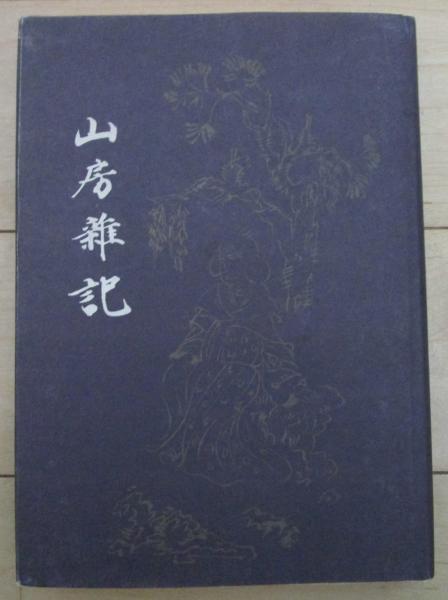 山房雜記